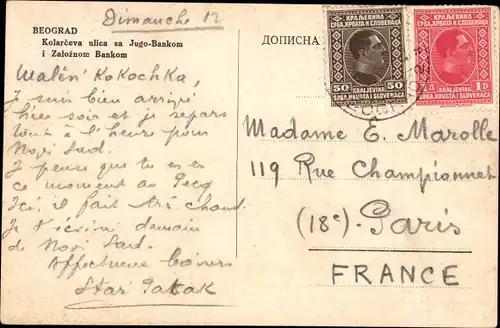 Dimanche 12
BEOGRAD
Kolarčeva ulica sa Jugo-Bankom
i Založnom Bankom
ДОПИСНА
КРАЉЕВИНА
СРБА, ХРВАТА И СЛОВЕНАЦА
50 50
KRALJEVINA
SRBA, HRVATA I SLOVENACA
КРАЉЕВИНА
СРБА, ХРВАТА И СЛОВЕНАЦА
1Д 1D
KRALJEVINA
SRBA, HRVATA I SLOVENACA
Malen' Kokochka,
Je suis bien arrivé
hier soir et je repars
tout à l'heure pour
Novi Sad.
Je pense que tu es en
ce moment au Pecq
Ici il fait très chaud.
Je t'écrirai demain
de Novi Sad.
Affectueux baisers
Stari Patak
Madame E. Marolle
119 Rue Championnet
(18e) Paris
FRANCE